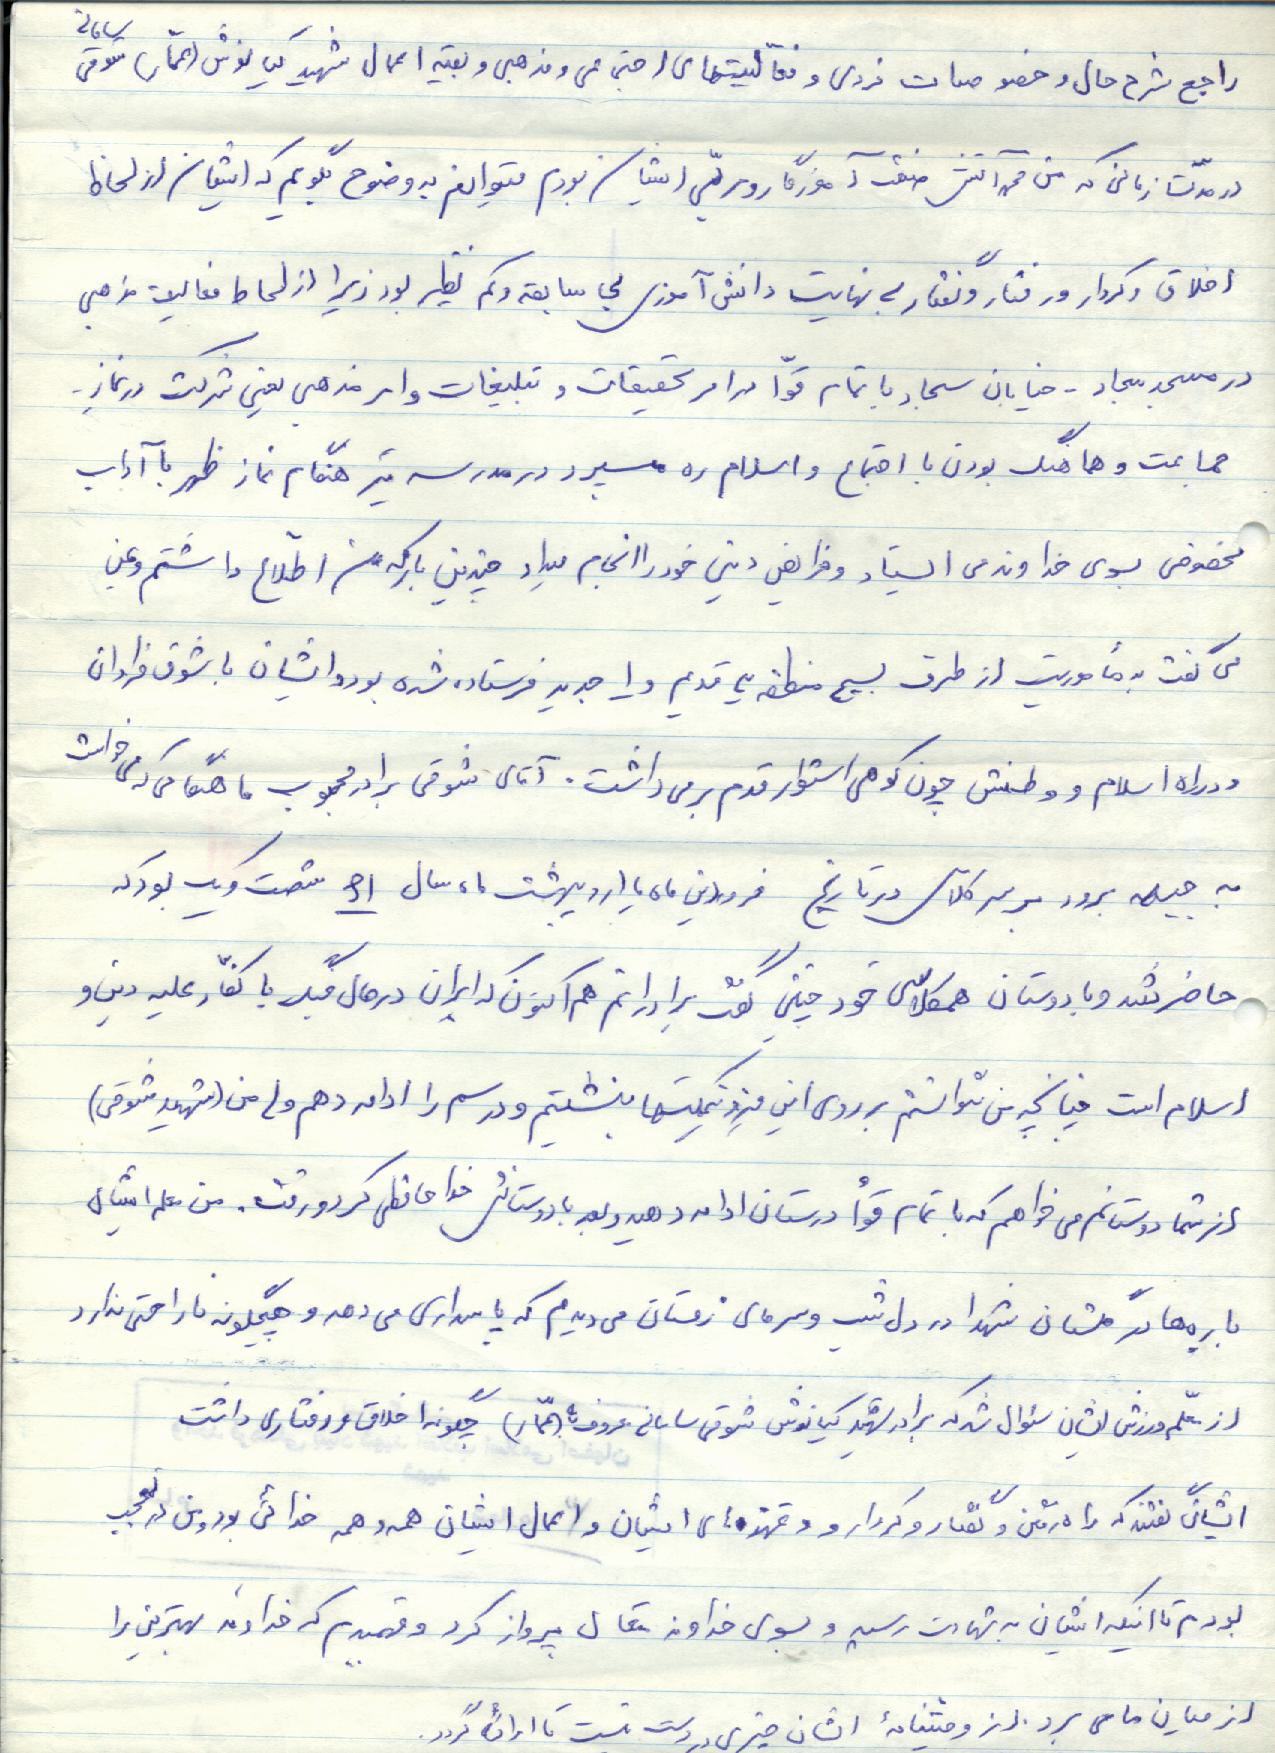 راجع بشرح حال و خصوصیات فردی و فعّالیتهای اجتماعی و مذهبی و بقیه اعمال شهید کیانوش (عمّار) شوقی سامانی
در مدّت زمانی که من آموزگار و مربّی ایشان بودم میتوانم به وضوح بگویم که ایشان از لحاظ
اخلاق و کردار و رفتار و گفتار بی نهایت دانش آموزی بی سابقه و کم نظیر بود زیرا از لحاظ فعالیت مذهبی
در مسجد سجاد - خیابان سجاد با تمام قوّا در امر تحقیقات و تبلیغات و امر مذهبی یعنی شرکت در نماز -
جماعت و هماهنگ بودن با اجتماع و اسلام ره میسپرد در مدرسه نیز هنگام نماز ظهر با آداب
مخصوص بسوی خداوند می ایستاد و فرایض دینی خود را انجام میداد چندین بار که من اطّلاع داشتم و بمن
می گفت به مأموریت از طرف بسیج منطقه یک قدیم و جدید فرستاده شده بود و ایشان با شوق فراوان
و در راه اسلام و وطنش چون کوهی استوار قدم برمی داشت. آقای شوقی برادر محبوب ما هنگامی که می خواست
به جبهه برود بر سر کلاس در تاریخ فروردین ماه یا اردیبهشت ماه سال ۶۱ شصت و یک بود که
حاضر شد و با دوستان همکلاسی خود چنین گفت برادرانم هم اکنون که ایران در حال جنگ با کفّار علیه دین و
اسلام است چنانچه من نتوانستم بر روی این میز و نیمکتها بنشینم و درسم را ادامه دهم ولی من (شهید شوقی)
از شما دوستانم می خواهم که با تمام قوّا درستان ادامه دهید و بعد با دوستانش خدا حافظی کرد و رفت. من معلم ایشان
بارها در گلستان شهدا در دل شب و سرمای زمستان می دیدم که پاسداری می دهد و هیچگونه ناراحتی ندارد
از معلّم ورزش ایشان سئوال شد که برادر شهید کیانوش شوقی سامانی معروف به (عمّار) چگونه اخلاق و رفتاری داشت
ایشان گفتند که راه رفتن و گفتار و کردار و ایشان و اعمال ایشان همه و همه خدائی بود و من در تعجب
بودم تا اینکه ایشان به شهادت رسید و بسوی خداوند متعال پرواز کرد و فهمیدیم که خداوند بهترین را
از میان ما می برد. از وصیتنامهٔ ایشان چیزی در دست نیست تا ارائه گردد.